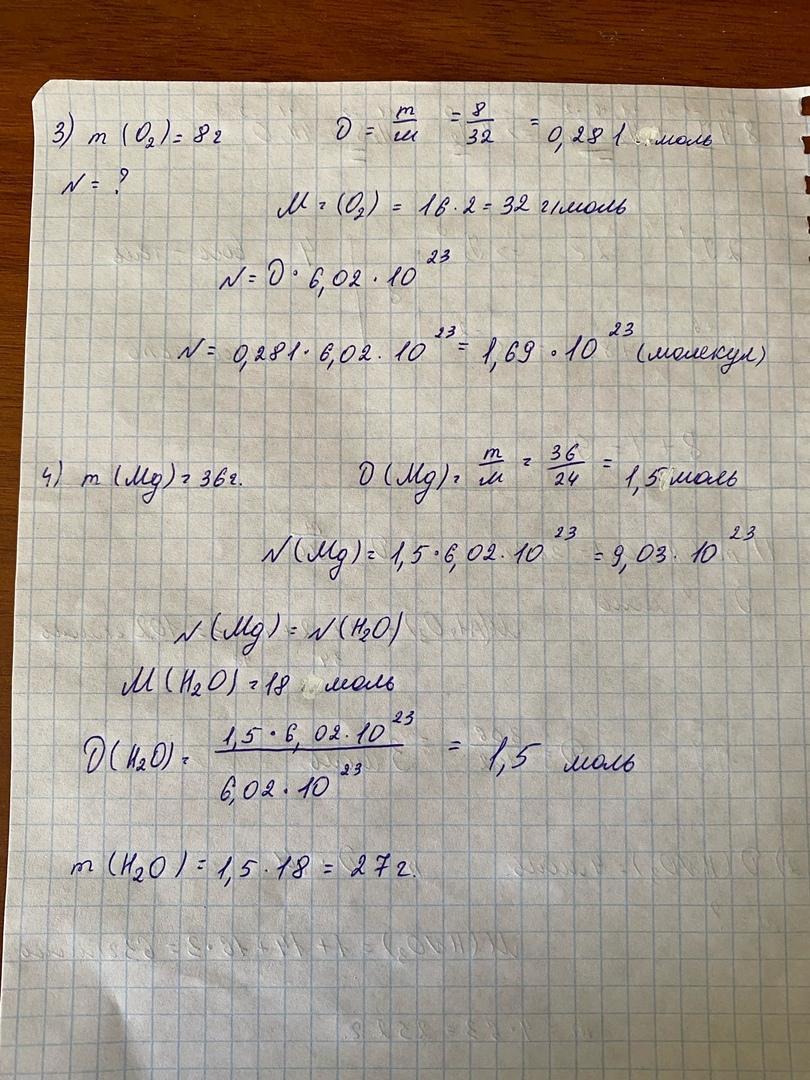 3) m (O₂) = 8г    ϑ = m/м = 8/32 = 0,281 моль
N = ?
M = (O₂) = 16·2 = 32 г/моль
N = ϑ · 6,02 · 10²³
N = 0,281 · 6,02 · 10²³ = 1,69 · 10²³ (молекул)
4) m (Mg) = 36г.    ϑ (Mg) = m/м = 36/24 = 1,5 моль
N (Mg) = 1,5 · 6,02 · 10²³ = 9,03 · 10²³
N (Mg) = N (H₂O)
M (H₂O) = 18 моль
ϑ (H₂O) = 1,5 · 6,02 · 10²³ / 6,02 · 10²³ = 1,5 моль
m (H₂O) = 1,5 · 18 = 27г.